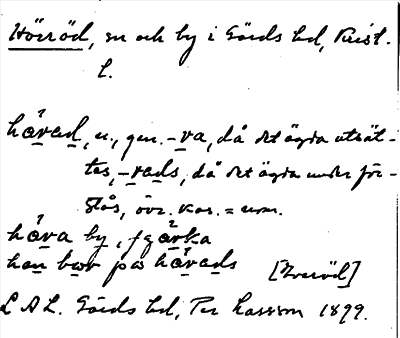 Hörröd, sn och by i Gärds hd, Krist.
l.
håvad, n., gen. -va, då det ägda utsät-
tes, -vads, då det ägda under för-
stås, övr. kas. = nom.
håra by,
han bor på hårads
L A L. Gärds hd, Per Larsson 1899.